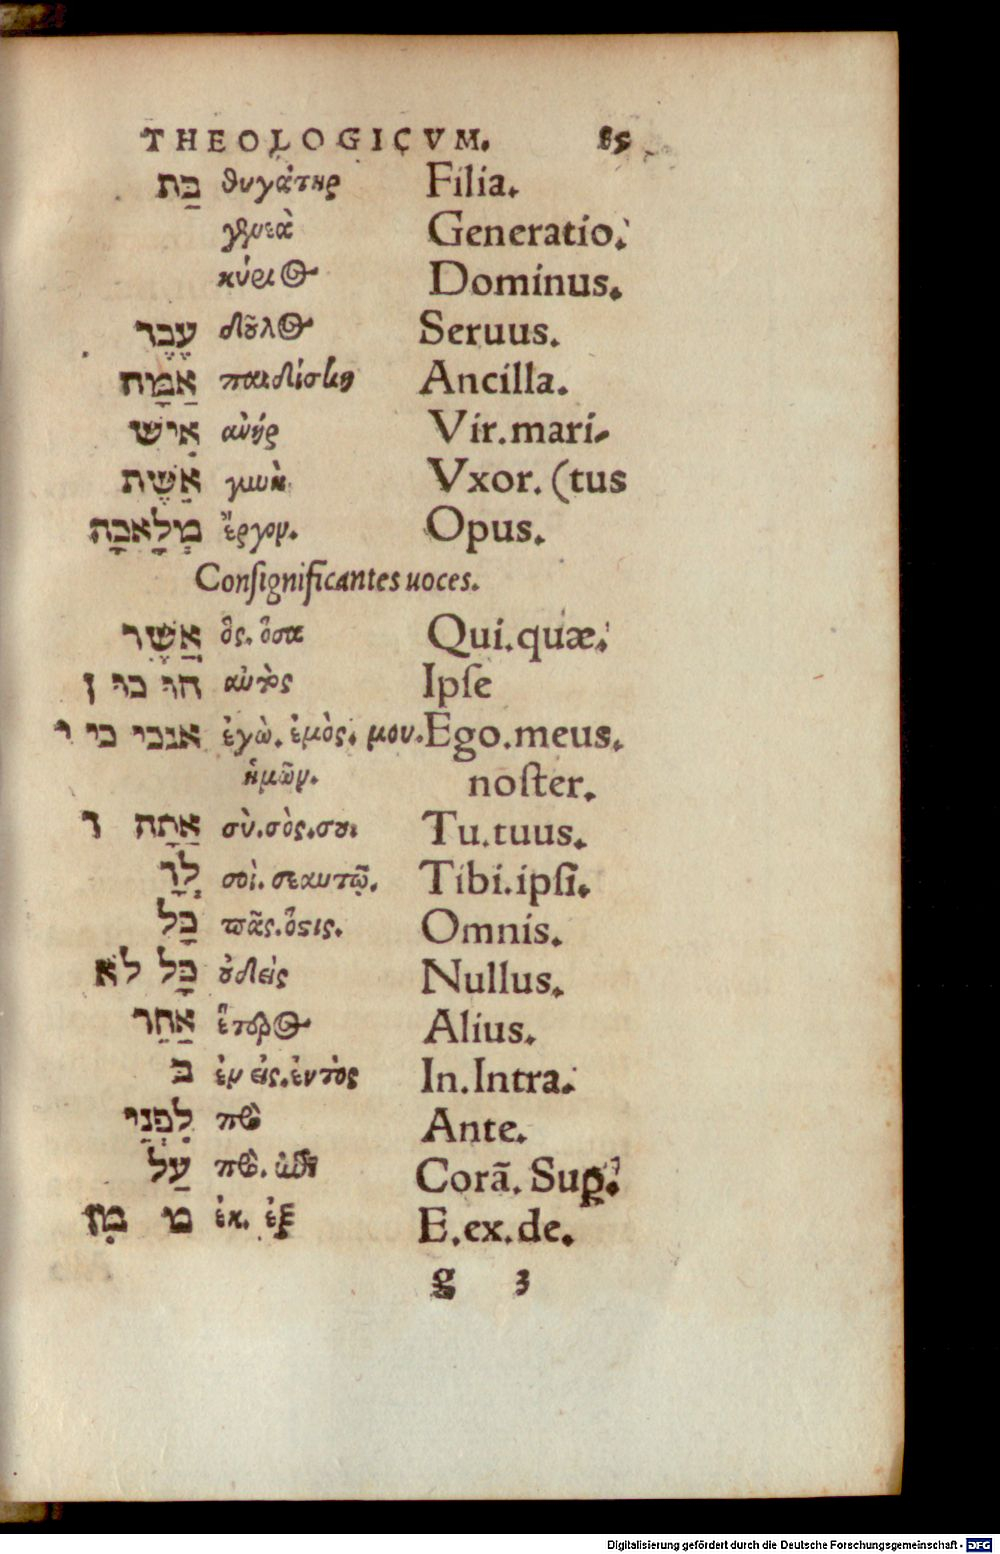 THEOLOGICVM. 85
בַּת θυγάτηρ Filia.
γενεὰ Generatio.
κύριος Dominus.
עֶבֶר δοῦλος Seruus.
אַמָּת παιδίσκη Ancilla.
אִישׁ ἀνήρ Vir.mari-
אֵשֶׁת γυνὴ Vxor. (tus
מְלָאכָה ἔργον. Opus.
Conſignificantes uoces.
אֲשֶׁר ὃς. ὅσα Qui.quæ.
הו כו ן αὐτὸς Ipſe
אנכי כי י ἐγὼ. ἐμὸς. μου. Ego.meus.
ἡμῶν. noſter.
אַתָּה ך σὺ.σὸς.σου. Tu.tuus.
לְךָ σοὶ. σεαυτῷ. Tibi.ipſi.
כָּל πᾶς.ὅστις. Omnis.
כָּל לֹא οὐδεὶς Nullus.
אַחֵר ἕτερος Alius.
ב ἐν εἰς.ἐντὸς In.Intra.
לִפְנֵי πρὸ Ante.
עַל πρὸ. Corã. Sup.
מ מִן ἐκ. ἐξ E.ex.de.
g 3
Digitalisierung gefördert durch die Deutsche Forschungsgemeinschaft - DFG